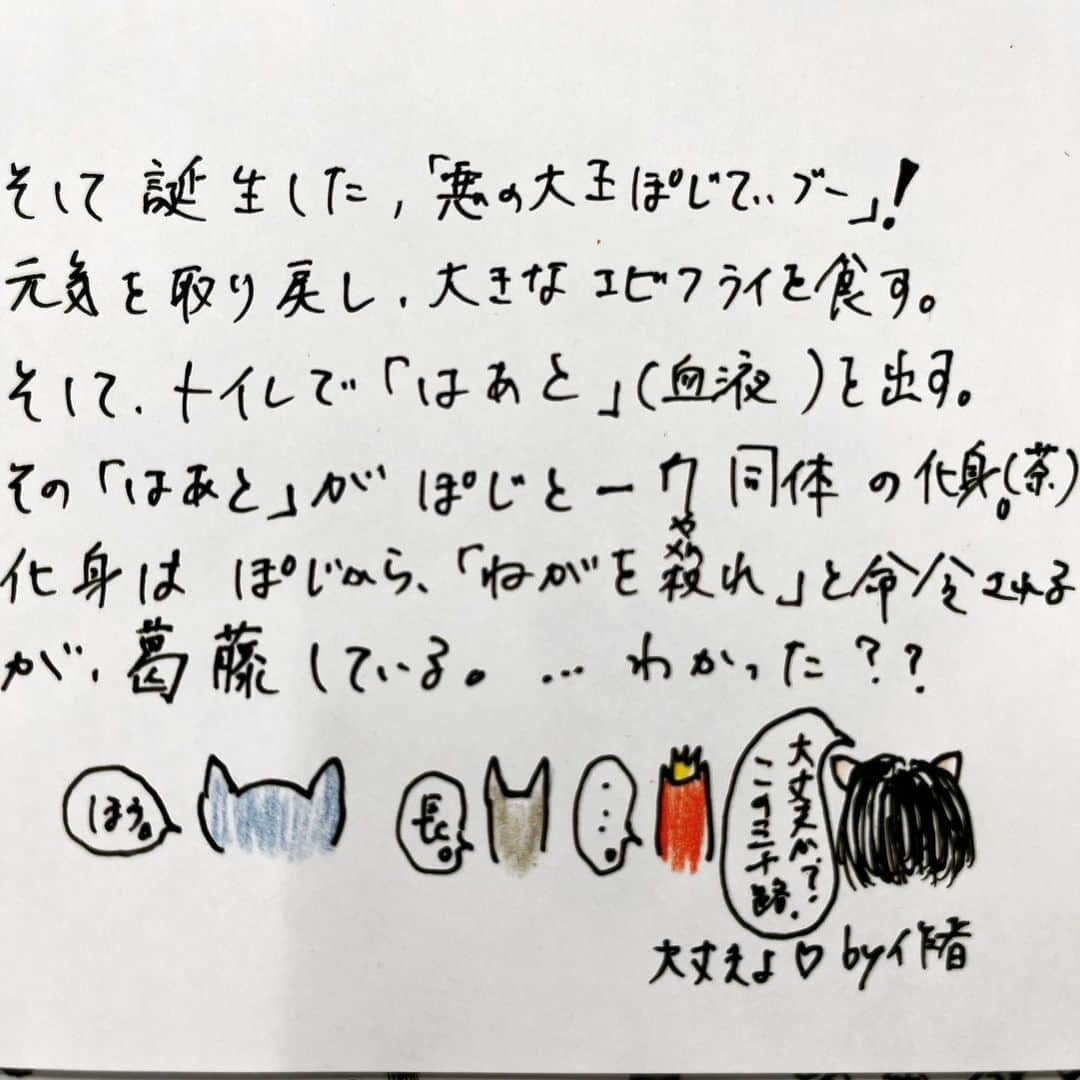 そして誕生した,「悪の大王ぽじてぃブー」!
元気を取り戻し、大きなエビフライを食す。
そして、トイレで「はぁと」(血液)を出す。
その「はぁと」がぽじと一ウ同体の化身。(茶)
化身はぽじから、「ねがを殺れ」と命令される
や
が、葛藤している。…わかった??
ほう。
長。
・・・。
大丈夫か?
この三十路、
大丈夫よ♡by作者